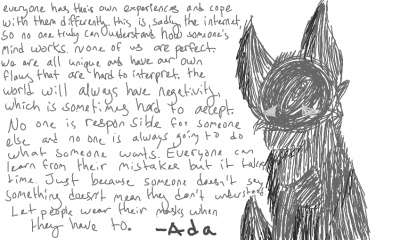 everyone has their own experiences and cope
with them differently. this is, sadly the internet.
So no one truly can understand how someone's
mind works. None of us are perfect.
we are all unique and have our own
flaws that are hard to interpret. the
world will always have negativity,
which is sometimes hard to accept.
No one is responsible for someone
else and no one is always going to do
what someone wants. Everyone can
learn from their mistakes but it takes
time. Just because someone doesn't say
something doesn't mean they don't understand
Let people wear their masks when
they have to. -Ada